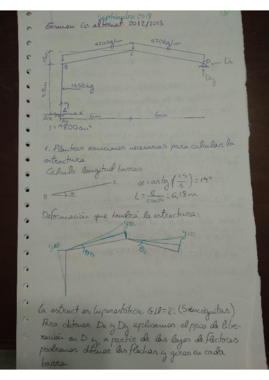 Septiembre 2013
Examen Co alternat 2012/2013
420kg/m 420kg/m
1450kg
6m 6m
I = 9800cm⁴
1. Plantear ecuaciones necesarias para calcular la
estructura
Calculo longitud barras
α = arctg (1'5/6) = 14°
L = 6/cos14 = 6,18m
Deformación que tendrá la estructura:
La estruct es hiperestática GLH=2: (5 incógnitas)
Para obtener Dx y Dy aplicamos el paso de libe-
ración en D y a partir de las leyes de flectores
podremos obtener las flechas y giros en cada
barra